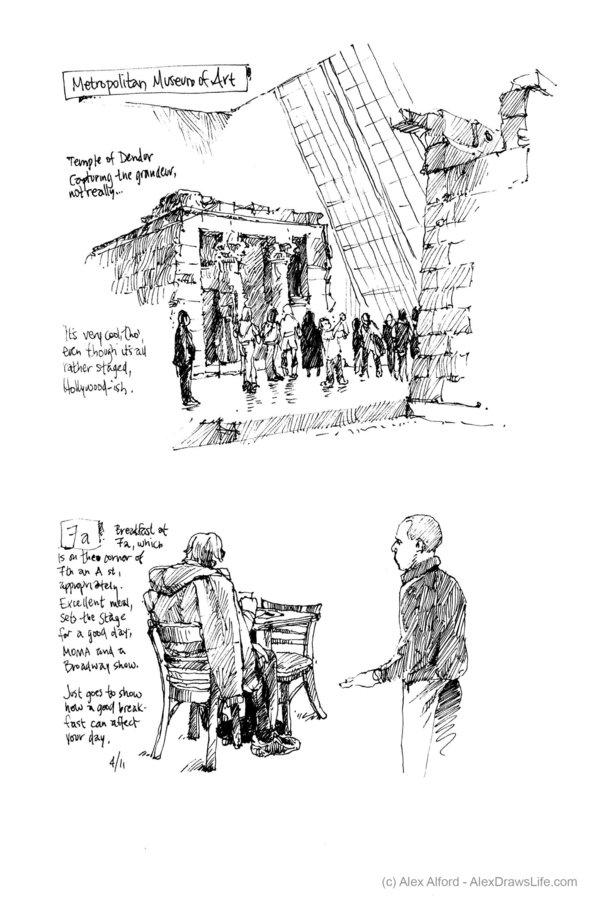 Metropolitan Museum of Art
Temple of Dendar
Capturing the grandeur,
not really...
It's very cool, tho',
even though it's all
rather staged,
Hollywood-ish.
7a
Breakfast at
7a, which
is on the corner of
7th an A st,
appropriately.
Excellent meal,
sets the stage
for a good day;
MOMA and a
Broadway show.
Just goes to show
how a good break-
fast can affect
your day.
4/11
(c) Alex Alford - AlexDrawsLife.com